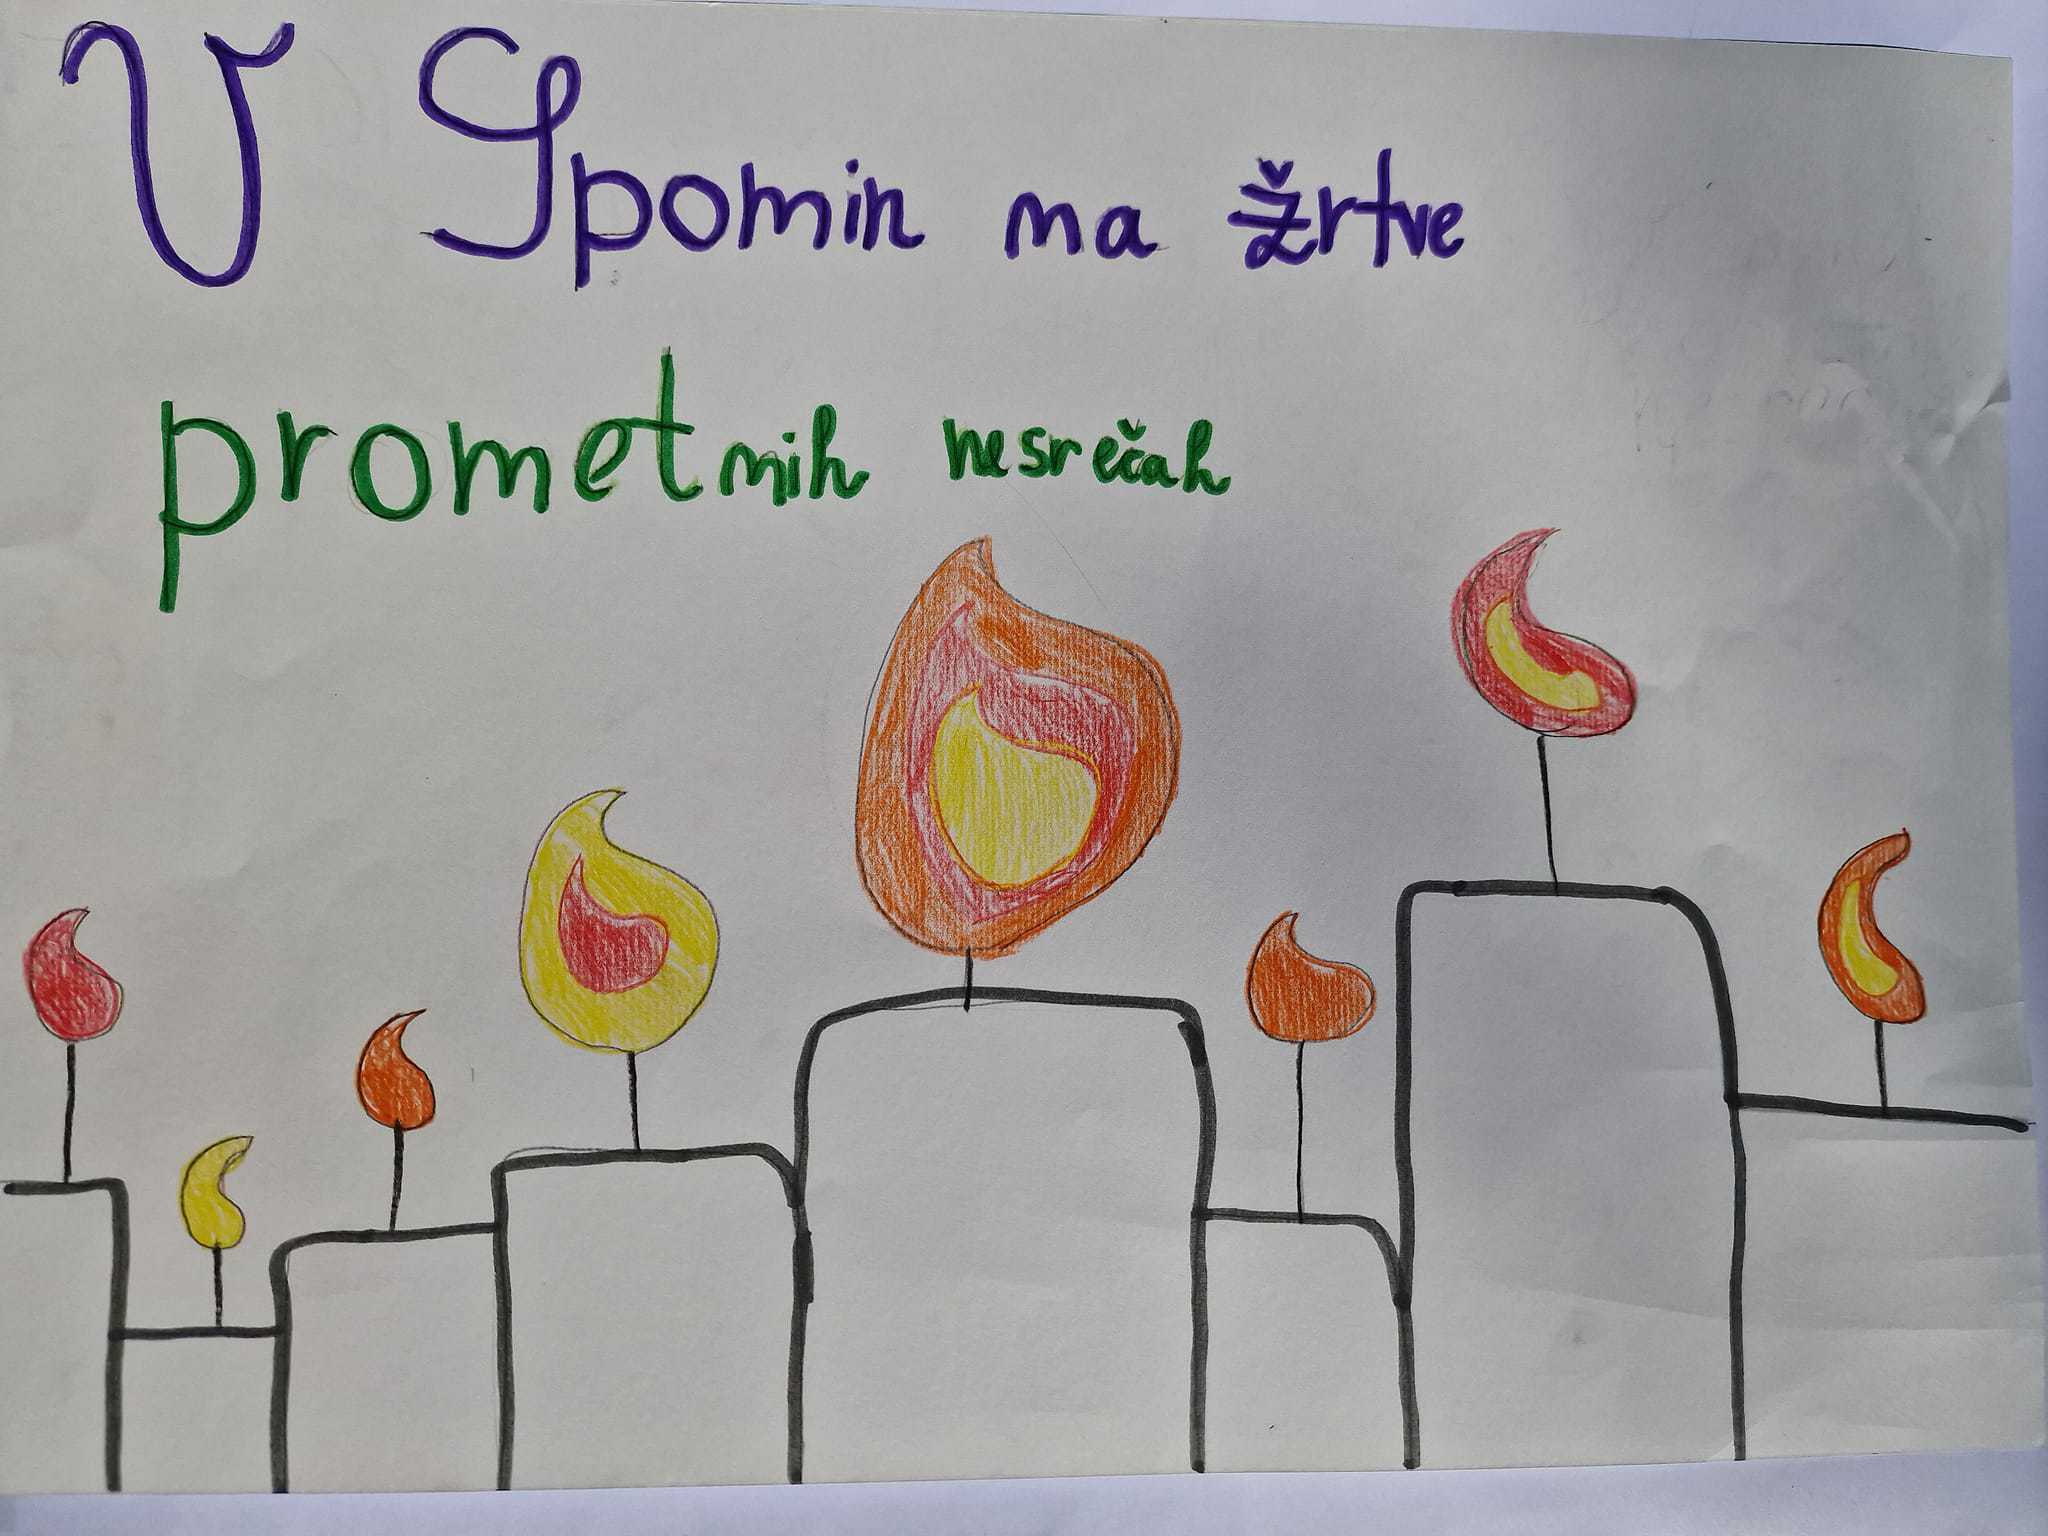 V Spomin na žrtve
prometnih nesrečah